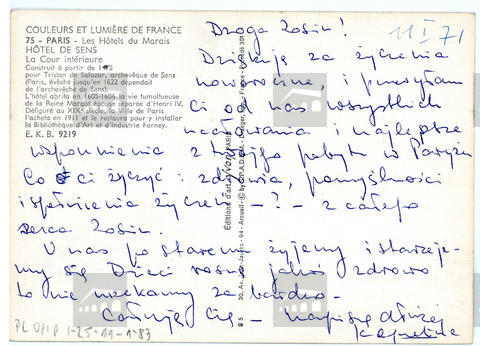 COULEURS ET LUMIÈRE DE FRANCE
75 - PARIS - Les Hôtels du Marais
HÔTEL DE SENS
La Cour intérieure
Construit à partir de 1475
pour Tristan de Salazar, archevêque de Sens
(Paris, évêché jusqu'en 1622 dépendait
de l'archevêché de Sens).
L'hôtel abrita en 1605-1606 la vie tumultueuse
de la Reine Margot épouse séparée d'Henri IV.
Défiguré au XIXe siècle, la Ville de Paris
l'acheta en 1911 et le restaura pour y installer
la Bibliothèque d'Art et d'Industrie Forney.
E. K. B. 9219
11 I 71
Droga Zosiu!
Dziękuję za życzenia
noworoczne, i przesyłam
Ci od nas wszystkich
ucałowania i najlepsze
wspomnienia z twojego pobytu w Paryżu
Co Ci życzyć : zdrowia, pomyślności
i spełnienia życzeń - ? - z całego
serca Zosiu.
U nas po staremu żyjemy i starzeje-
my się Dzieci rosną jakoś zdrowo
to nie narzekamy za bardzo -
Całuję Cię - napiszę dłużej
Editions d'art YVON PARIS
PL OPIP 1-25-11-1-83